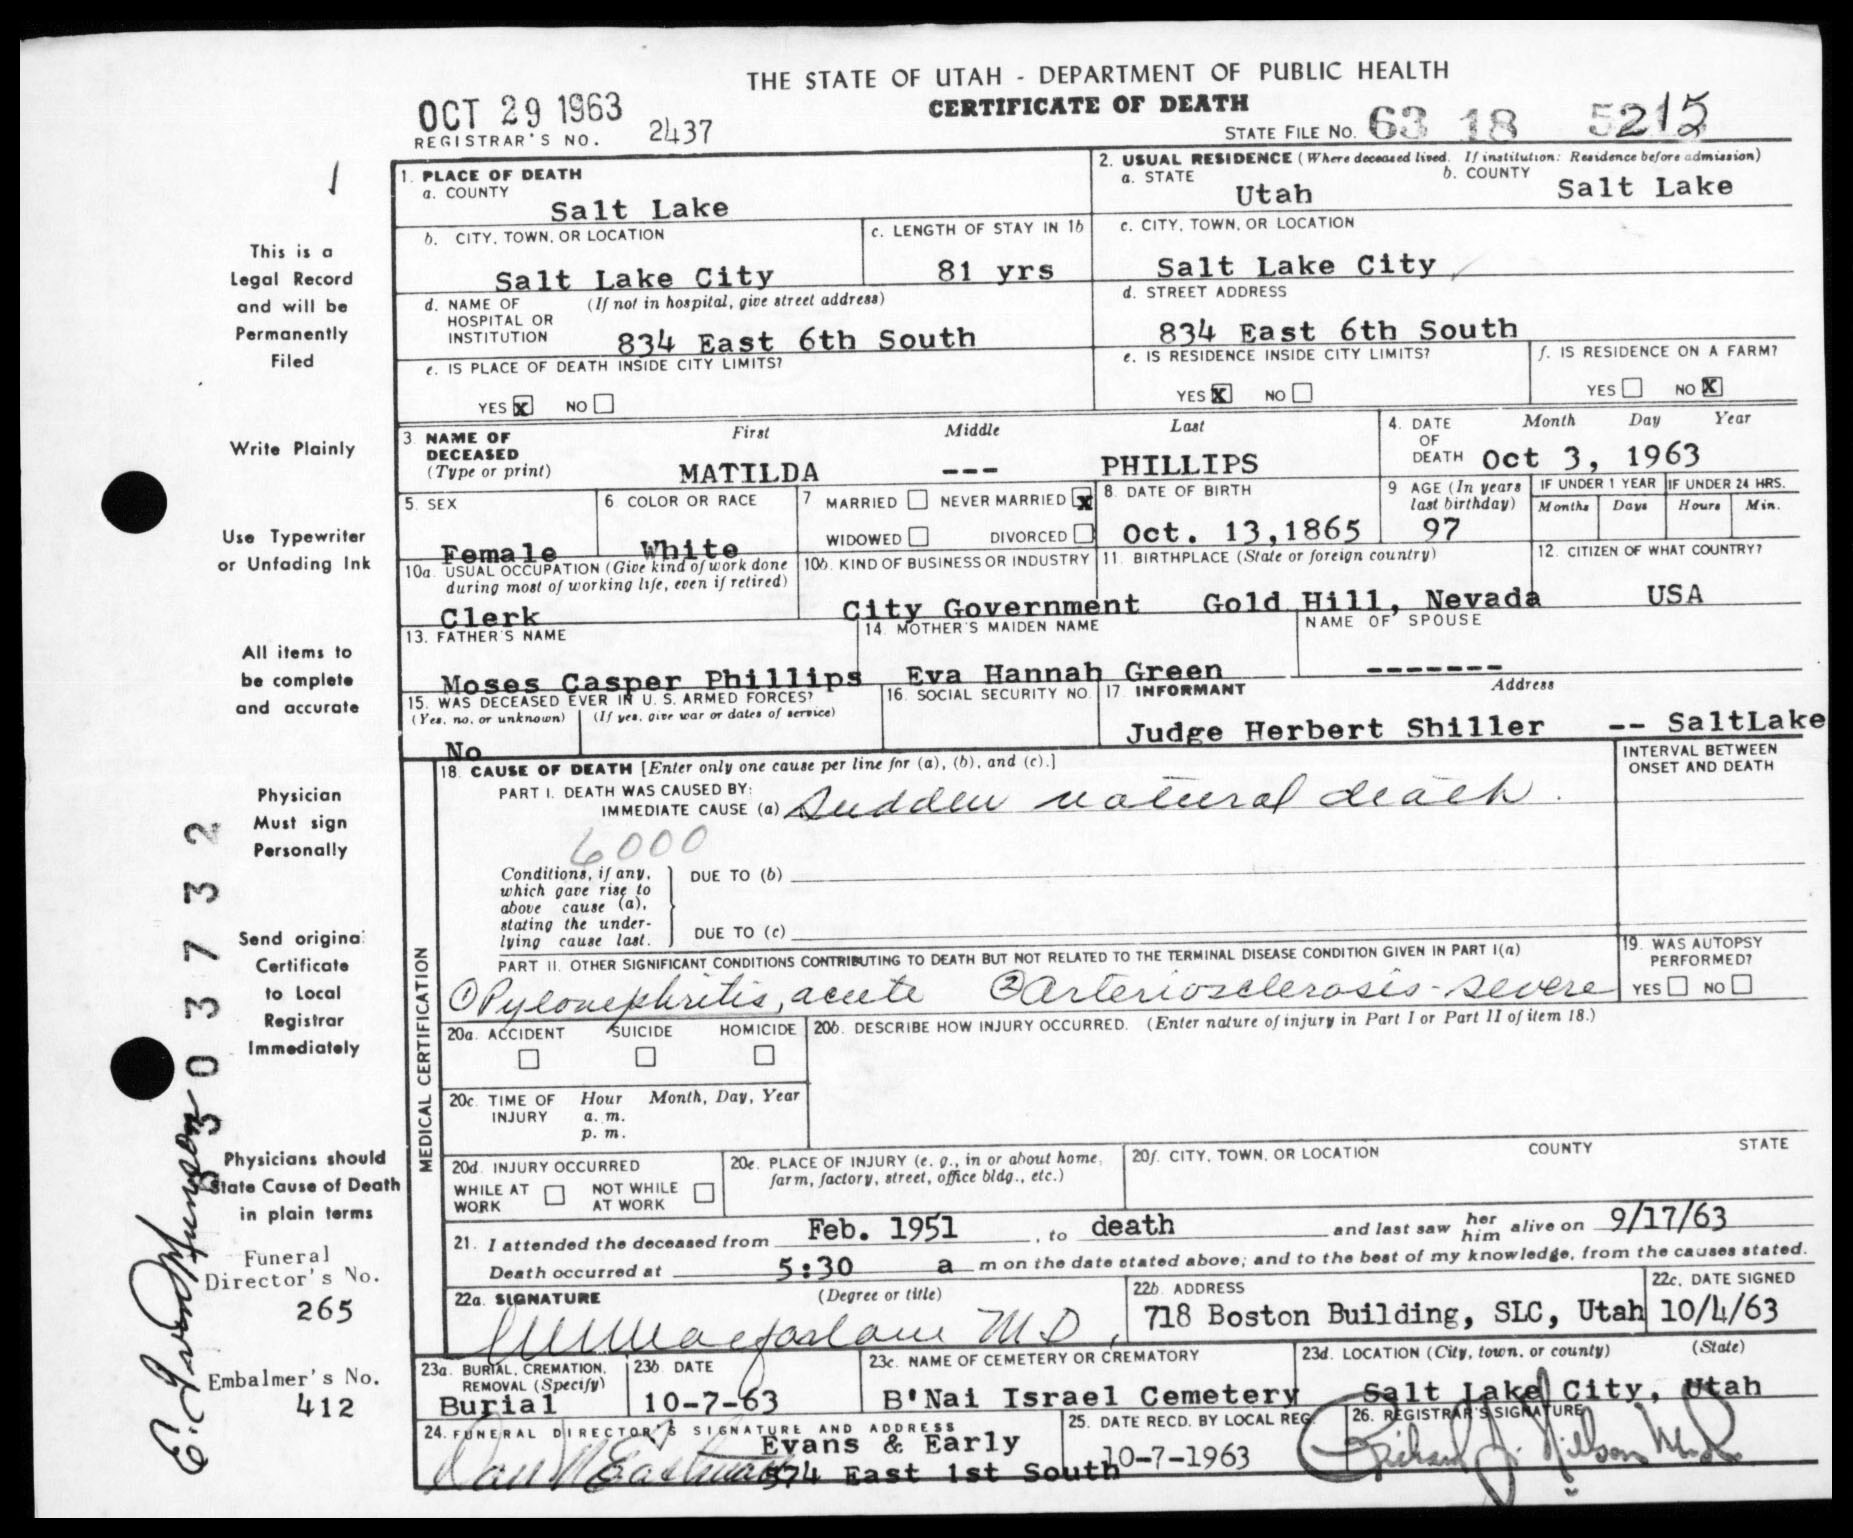 THE STATE OF UTAH - DEPARTMENT OF PUBLIC HEALTH
CERTIFICATE OF DEATH
OCT 29 1963
REGISTRAR'S NO. 2437
STATE FILE NO. 63 18 5215
1
1. PLACE OF DEATH
a. COUNTY
Salt Lake
2. USUAL RESIDENCE (Where deceased lived. If institution: Residence before admission)
a. STATE Utah b. COUNTY Salt Lake
b. CITY, TOWN, OR LOCATION
Salt Lake City
c. LENGTH OF STAY IN 1b
81 yrs
c. CITY, TOWN, OR LOCATION
Salt Lake City
d. NAME OF HOSPITAL OR INSTITUTION (If not in hospital, give street address)
834 East 6th South
d. STREET ADDRESS
834 East 6th South
e. IS PLACE OF DEATH INSIDE CITY LIMITS?
YES X NO
e. IS RESIDENCE INSIDE CITY LIMITS?
YES X NO
f. IS RESIDENCE ON A FARM?
YES NO X
3. NAME OF DECEASED (Type or print)
First Middle Last
MATILDA --- PHILLIPS
4. DATE OF DEATH Month Day Year
Oct 3, 1963
5. SEX
Female
6. COLOR OR RACE
White
7 MARRIED NEVER MARRIED X
WIDOWED DIVORCED
8. DATE OF BIRTH
Oct. 13,1865
9 AGE (In years last birthday)
97
IF UNDER 1 YEAR
Months Days
IF UNDER 24 HRS.
Hours Min.
10a. USUAL OCCUPATION (Give kind of work done during most of working life, even if retired)
Clerk
10b. KIND OF BUSINESS OR INDUSTRY
City Government
11. BIRTHPLACE (State or foreign country)
Gold Hill, Nevada
12. CITIZEN OF WHAT COUNTRY?
USA
13. FATHER'S NAME
Moses Casper Phillips
14. MOTHER'S MAIDEN NAME
Eva Hannah Green
NAME OF SPOUSE
-------
15. WAS DECEASED EVER IN U. S. ARMED FORCES?
(Yes, no, or unknown) (If yes, give war or dates of service)
No
16. SOCIAL SECURITY NO.
17. INFORMANT Address
Judge Herbert Shiller -- SaltLake
MEDICAL CERTIFICATION
18. CAUSE OF DEATH [Enter only one cause per line for (a), (b), and (c).]
INTERVAL BETWEEN ONSET AND DEATH
PART I. DEATH WAS CAUSED BY:
IMMEDIATE CAUSE (a) Sudden natural death.
6000
Conditions, if any, which gave rise to above cause (a), stating the underlying cause last.
DUE TO (b)
DUE TO (c)
PART II. OTHER SIGNIFICANT CONDITIONS CONTRIBUTING TO DEATH BUT NOT RELATED TO THE TERMINAL DISEASE CONDITION GIVEN IN PART I(a)
① Pylonephritis, acute ② arteriosclerosis - severe
19. WAS AUTOPSY PERFORMED?
YES NO
20a. ACCIDENT SUICIDE HOMICIDE
20b. DESCRIBE HOW INJURY OCCURRED. (Enter nature of injury in Part I or Part II of item 18.)
20c. TIME OF INJURY Hour Month, Day, Year
a. m.
p. m.
20d. INJURY OCCURRED
WHILE AT WORK NOT WHILE AT WORK
20e. PLACE OF INJURY (e. g., in or about home, farm, factory, street, office bldg., etc.)
20f. CITY, TOWN, OR LOCATION COUNTY STATE
21. I attended the deceased from Feb. 1951, to death and last saw her him alive on 9/17/63
Death occurred at 5:30 a m on the date stated above; and to the best of my knowledge, from the causes stated.
22a. SIGNATURE (Degree or title)
Macfarlane M D,
22b. ADDRESS
718 Boston Building, SLC, Utah
22c. DATE SIGNED
10/4/63
23a. BURIAL, CREMATION, REMOVAL (Specify)
Burial
23b. DATE
10-7-63
23c. NAME OF CEMETERY OR CREMATORY
B'Nai Israel Cemetery
23d. LOCATION (City, town, or county) (State)
Salt Lake City, Utah
24. FUNERAL DIRECTOR'S SIGNATURE AND ADDRESS
Evans & Early
574 East 1st South
25. DATE RECD. BY LOCAL REG.
10-7-1963
26. REGISTRAR'S SIGNATURE
Richard J. Nilson
This is a
Legal Record
and will be
Permanently
Filed
Write Plainly
Use Typewriter
or Unfading Ink
All items to
be complete
and accurate
Physician
Must sign
Personally
Send original
Certificate
to Local
Registrar
Immediately
Physicians should
State Cause of Death
in plain terms
Funeral
Director's No.
265
Embalmer's No.
412